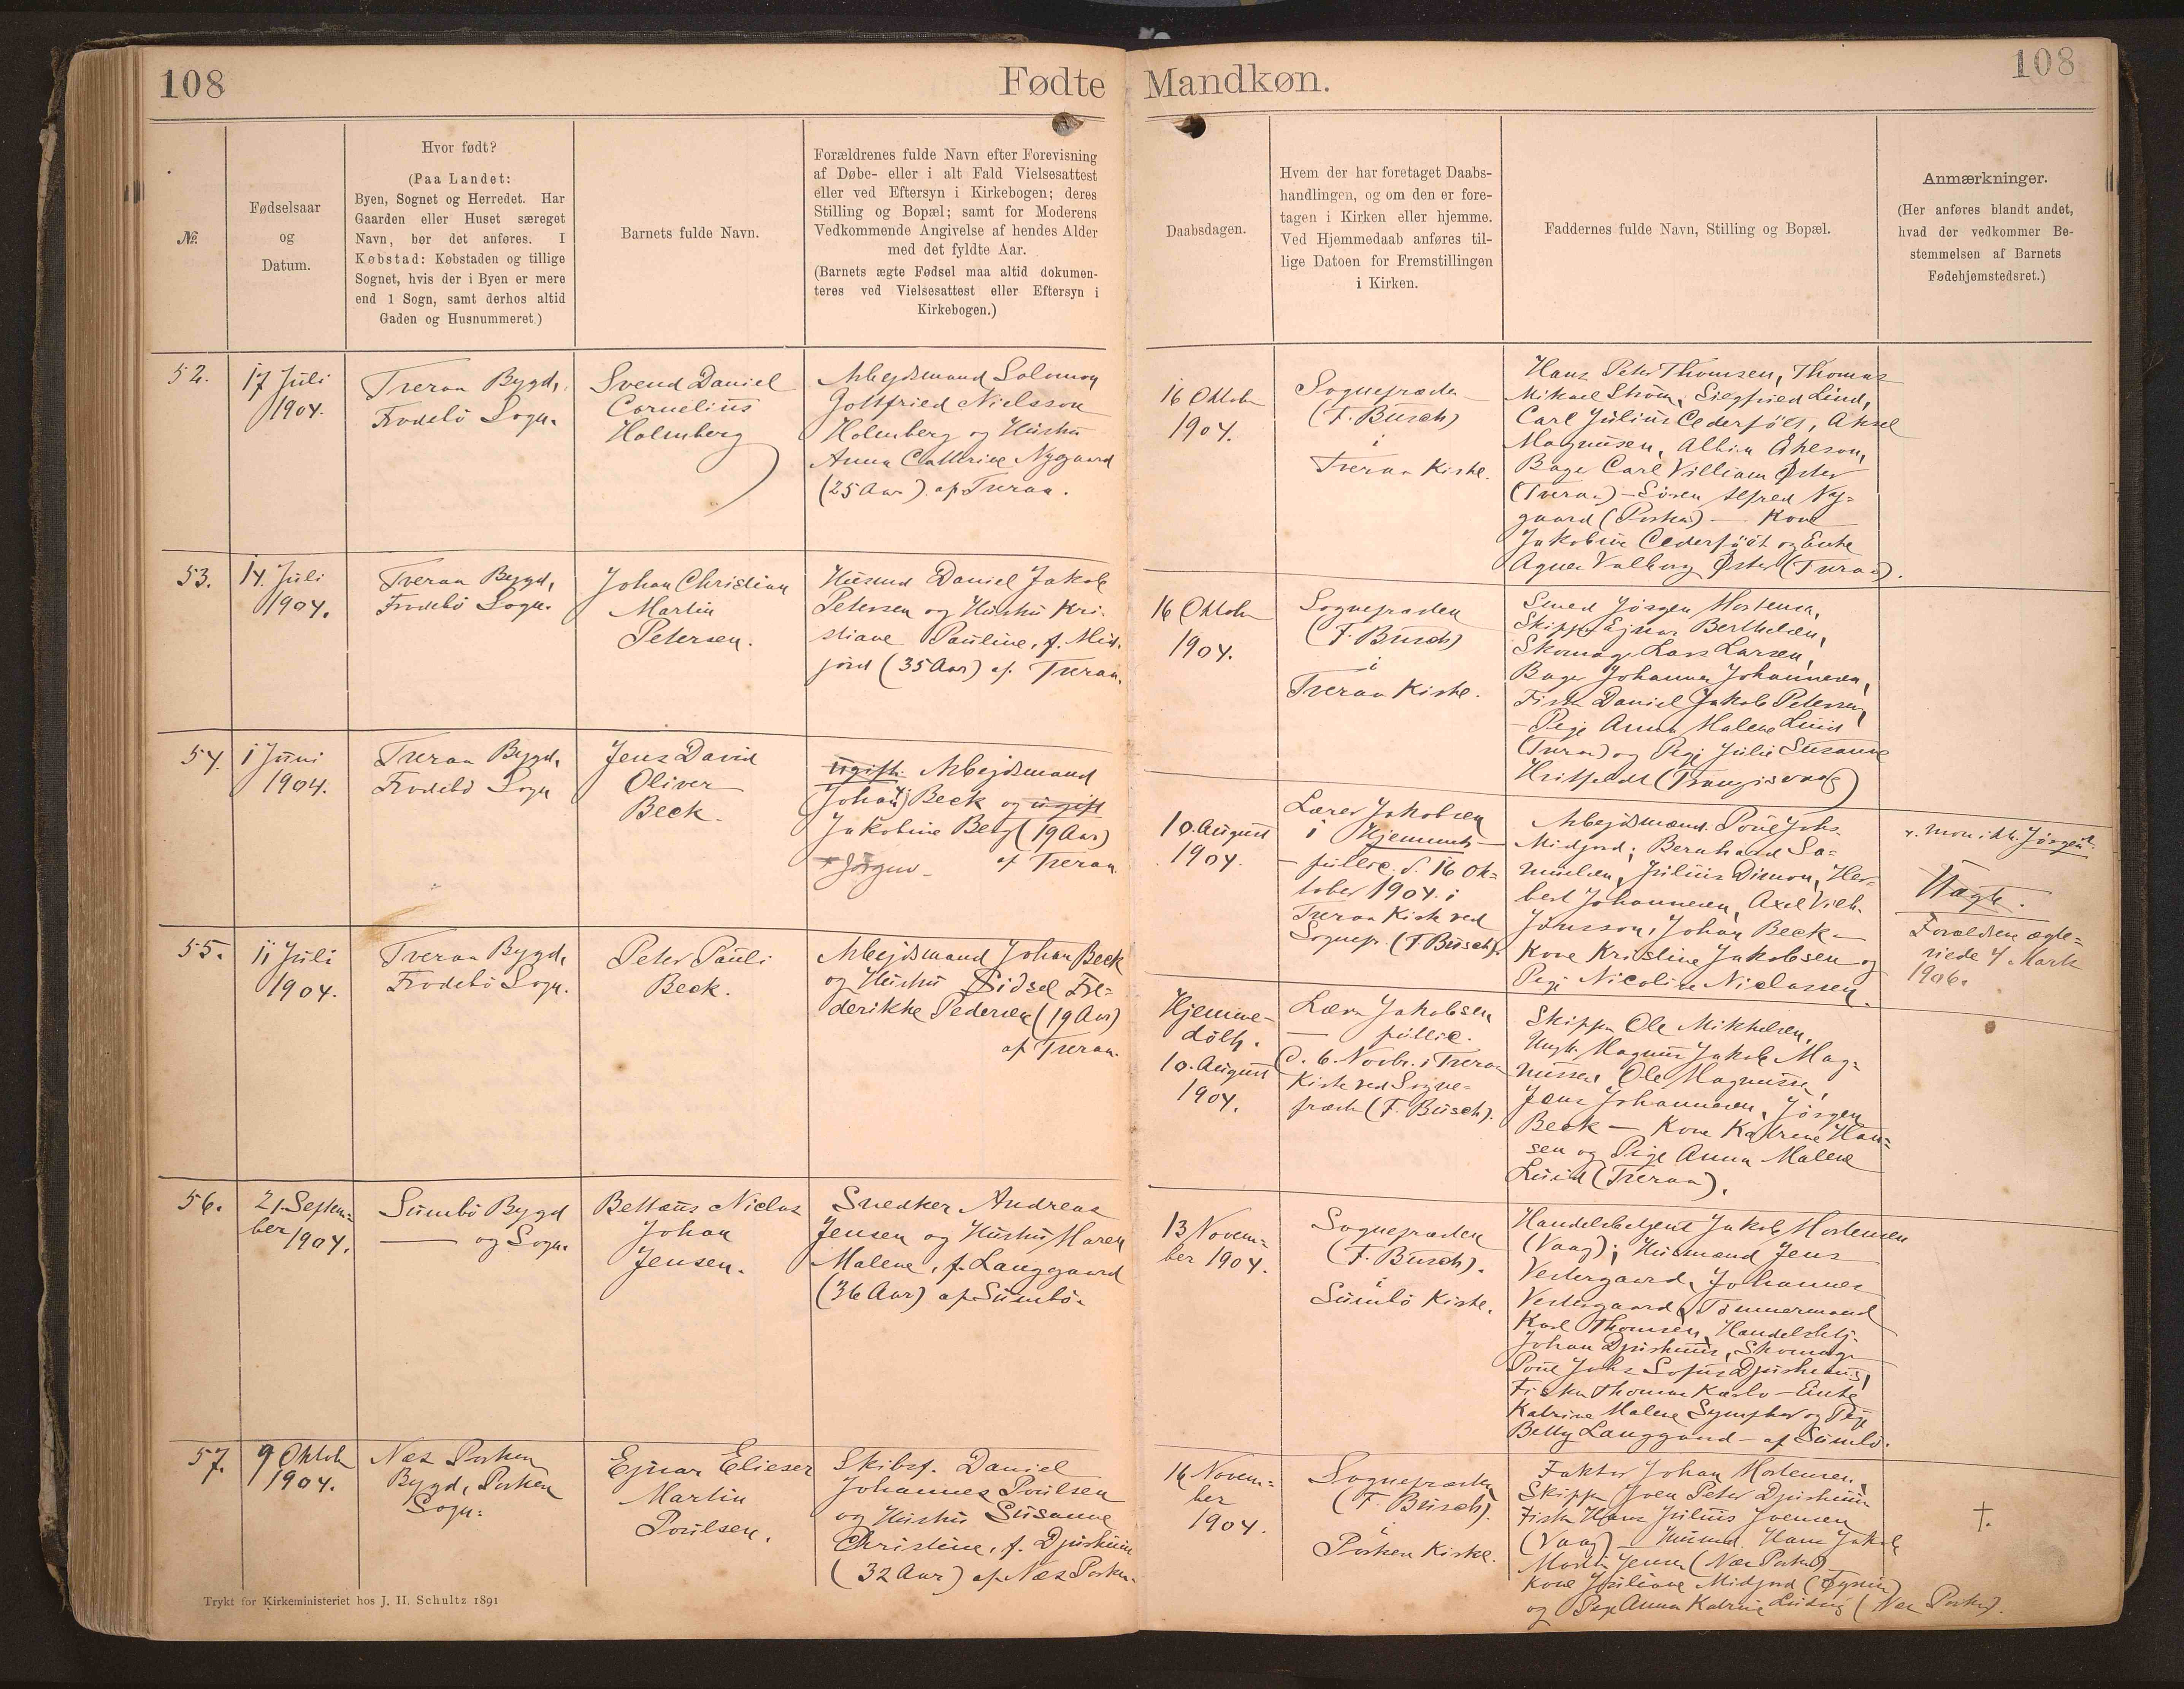 108
Fødte
Mandkøn.
108
№.
Fødselsaar
og
Datum.
Hvor født?
(Paa Landet:
Byen, Sognet og Herredet. Har
Gaarden eller Huset særeget
Navn, bør det anføres. I
Købstad: Købstaden og tillige
Sognet, hvis der i Byen er mere
end 1 Sogn, samt derhos altid
Gaden og Husnummeret.)
Barnets fulde Navn.
Forældrenes fulde Navn efter Forevisning
af Døbe- eller i alt Fald Vielsesattest
eller ved Eftersyn i Kirkebogen; deres
Stilling og Bopæl; samt for Moderens
Vedkommende Angivelse af hendes Alder
med det fyldte Aar.
(Barnets ægte Fødsel maa altid dokumen-
teres ved Vielsesattest eller Eftersyn i
Kirkebogen.)
Daabsdagen.
Hvem der har foretaget Daabs-
handlingen, og om den er fore-
tagen i Kirken eller hjemme.
Ved Hjemmedaab anføres til-
lige Datoen for Fremstillingen
i Kirken.
Faddernes fulde Navn, Stilling og Bopæl.
Anmærkninger.
(Her anføres blandt andet,
hvad der vedkommer Be-
stemmelsen af Barnets
Fødehjemstedsret.)
52.
17 Juli
1904.
Tveraa Bygd,
Frodebö Sogn.
Svend Daniel
Cornelius
Holmberg
Arbejdsmand Solomon
Gottfried Nielsson
Holmberg og Hustru
Anna Cathrine Nygaard
(25 Aar) af Tveraa.
16 Oktobr
1904.
Sognepræsten
(F. Busch)
i
Tveraa Kirke.
Hans Peter Thomsen, Thomas
Mikael Ström, Siegfried Lind,
Carl Julius Cederföst, Aksel
Magnusen, Albin Åkeson,
Bager Carl Villiam Öster
(Tveraa) – Sören Alfred Ny=
gaard (Porkeri) — Kone
Jakobine Cederföst og Enke
Agnes Valborg Öster (Tveraa).
53.
14. Juli
1904.
Tveraa Bygd,
Frodebö Sogn.
Johan Christian
Martin
Petersen.
Husmd Daniel Jakob
Petersen og Hustru Kri-
stiane Pauline, f. Mid-
jord (35 Aar) af Tveraa.
16 Oktobr
1904.
Sognepræsten
(F. Busch)
i
Tveraa Kirke.
Smed Jörgen Mortensen,
Skipper Ejnar Berthelsen,
Skomag Lars Larsen,
Bager Johannes Johannesen,
Fisker Daniel Jakob Petersen,
– Pige Anna Malene Lund
(Tveraa) og Pige Julie Susanne
(Trangisvaag)
54.
1 Juni
1904.
Tveraa Bygd,
Frodebö Sogn
Jens David
Oliver
Beck.
ugift Arbejdsmand
Johan Beck og ugift
Jakobine Berg (19 Aar)
Jörgen af Tveraa
10. August
1904.
Lærer Jakobsen
i Hjemmet
– public. d. 16 Ok=
tober 1904 i
Tveraa Kirke ved
Sognepr. (F. Busch).
Arbejdsmænd. Poul Johs.
Midjord; Bernhard Sa=
muelsen, Julius Dimon, Her-
bert Johannesen, Axel Vilh.
Jönsson, Johan Beck –
Kone Kristine Jakobsen og
Pige Nicoline Niclassen.
mon ikke Jörgen?
Uægte.
Forældrene ægte=
viede 4 Marts
1906.
55.
11 Juli
1904.
Tveraa Bygd,
Frodebö Sogn.
Peter Pauli
Beck.
Arbejdsmand Johan Beck
og Hustru Sidsel Fre-
derikke Pedersen (19 Aar)
af Tveraa.
Hjemme-
döbt.
10. August
1904.
Lærer Jakobsen
— public.
d. 6. Novbr. i Tveraa
Kirke ved Sogne-
præst (F. Busch).
Skipper Ole Mikkelsen,
Ungk. Magnus Jakob Mag-
nussen, Ole Magnussen,
Jens Johannesen, Jörgen
Beck — Kone Katrine Han=
sen og Pige Anna Malene
Lund (Tveraa).
56.
21. Septem=
ber 1904.
Sumbö Bygd
— og Sogn.
Bettaus Niclas
Johan
Jensen.
Snedker Andreas
Jensen og Hustru Maren
Malene, f. Langgaard
(36 Aar) af Sumbö.
13 Novem=
ber 1904.
Sognepræsten
(F. Busch).
i
Sumbö Kirke.
Handelsbetjent Jakob Mortensen
(Vaag); Husmænd Jens
Vestergaard, Johannes
Vestergaard, Tömmermand
Karl Thomsen, Handelsbtj.
Johan Djurhuus, Skomager
Poul Johs Sofus Djurhuus,
Fisker Thomas Kærbo – Enke
Katrine Malene Symphor og Pige
Betty Langgaard – af Sumbö.
57.
9 Oktob
1904.
Næs Porkeri
Bygd, Porkeri
Sogn.
Ejnar Elieser
Martin
Poulsen.
Skibsf. Daniel
Johannes Poulsen
og Hustru Susanne
Christine, f. Djurhuus
(32 Aar) af Næs Porkeri.
16 Novem=
ber
1904.
Sognepræsten
(F. Busch).
i
Porkeri Kirke.
Faktor Johan Mortensen,
Skipper Joen Peter Djurhuus
Fisker Hans Julius Joensen
(Vaag) – Husmd. Hans Jakob
Martin Jensen (Næs Porkeri)
Kone Juliane Midjord (Öynir)
og Pige Anna Katrine Ludvig (Næs Porkeri).
†.
Trykt for Kirkeministeriet hos J. H. Schultz 1891